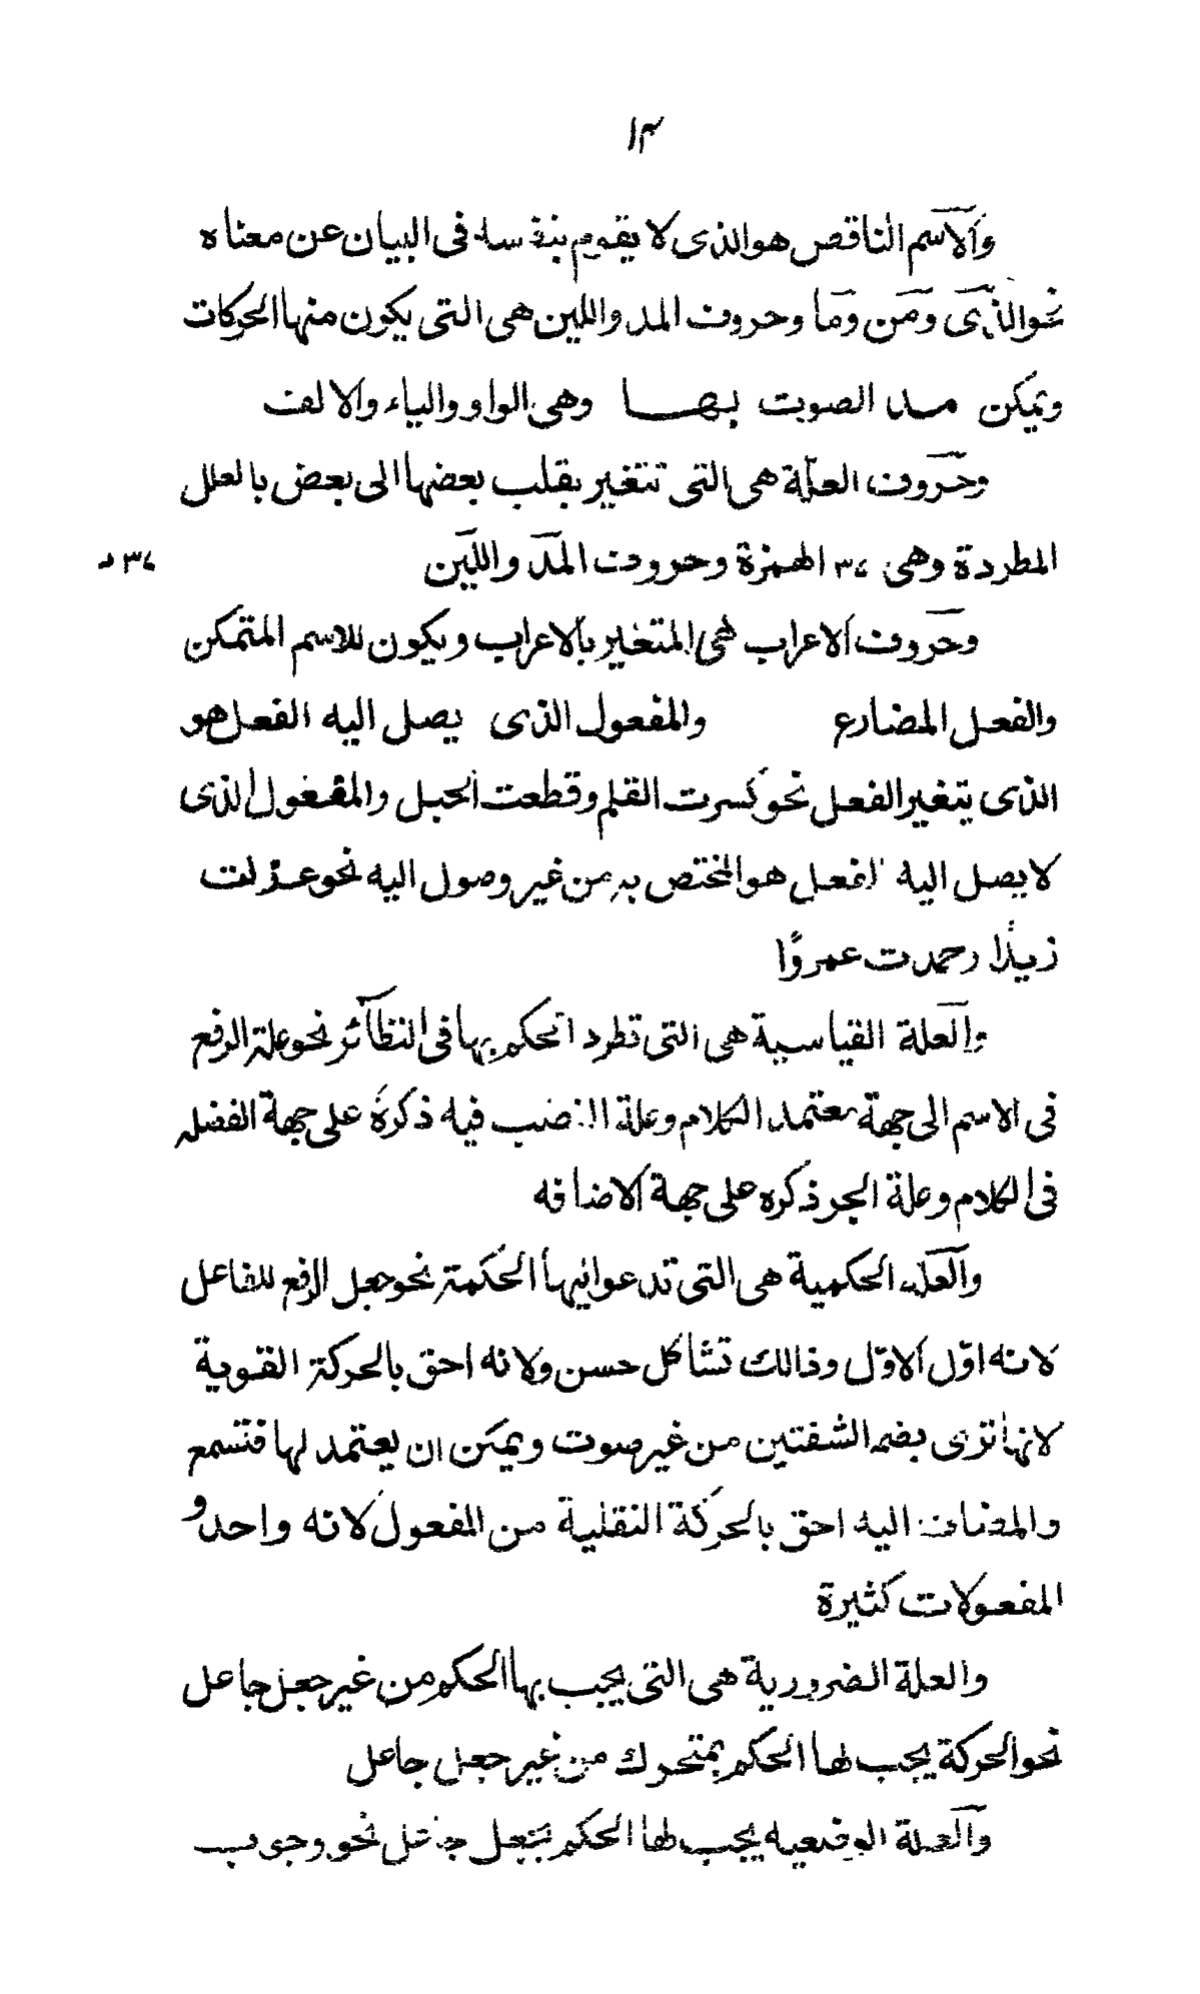 ١٣
والاسم الناقص هو الذى لا يقوم بنفسه فى البيان عن معناه
نحو الذى ومن وما وحروف المد واللين هى التى يكون منها الحركات
ويمكن مد الصوت بهـــا وهى الواو والياء والالف
وحروف العلّة هى التى تتغير بقلب بعضها الى بعض بالعلل
المطردة وهى ٣٧ الهمزة وحروف المدّ واللين
٣٧
وحروف الاعراب هى المتغير بالاعراب ويكون للاسم المتمكن
والفعل المضارع والمفعول الذى يصل اليه الفعل هو
الذى يتغير الفعل نحو كسرت القلم وقطعت الحبل والمفعول الذى
لا يصل اليه الفعل هو المختص به من غير وصول اليه نحو عزلت
زيدًا رحمدت عمروًا
والعلة القياسية هى التى تطرد الحكم بها فى النظآئر نحو علة الرفع
فى الاسم الى جهة معتمد الكلام وعلة النصب فيه ذكره على جهة الفضله
فى الكلام وعلة الجر ذكره على جهة الاضافه
والعلة الحكمية هى التى تدعوا اليها الحكمة نحو جعل الرفع للفاعل
لانه اوّل الاوّل وذالك تشاكل حسن ولانه احق بالحركة القوية
لانها ترى بضم الشفتين من غير صوت ويمكن ان يعتمد لها فتسمع
والمضاف اليه احق بالحركة النقلية من المفعول لانه واحد و
المفعولات كثيرة
والعلة الضرورية هى التى يجب بها الحكم من غير جعل جاعل
نحو الحركة يجب لها الحكم بمتحرك من غير جعل جاعل
والعلة الوضعيه يجب لها الحكم بجعل جاعل نحو وجوب